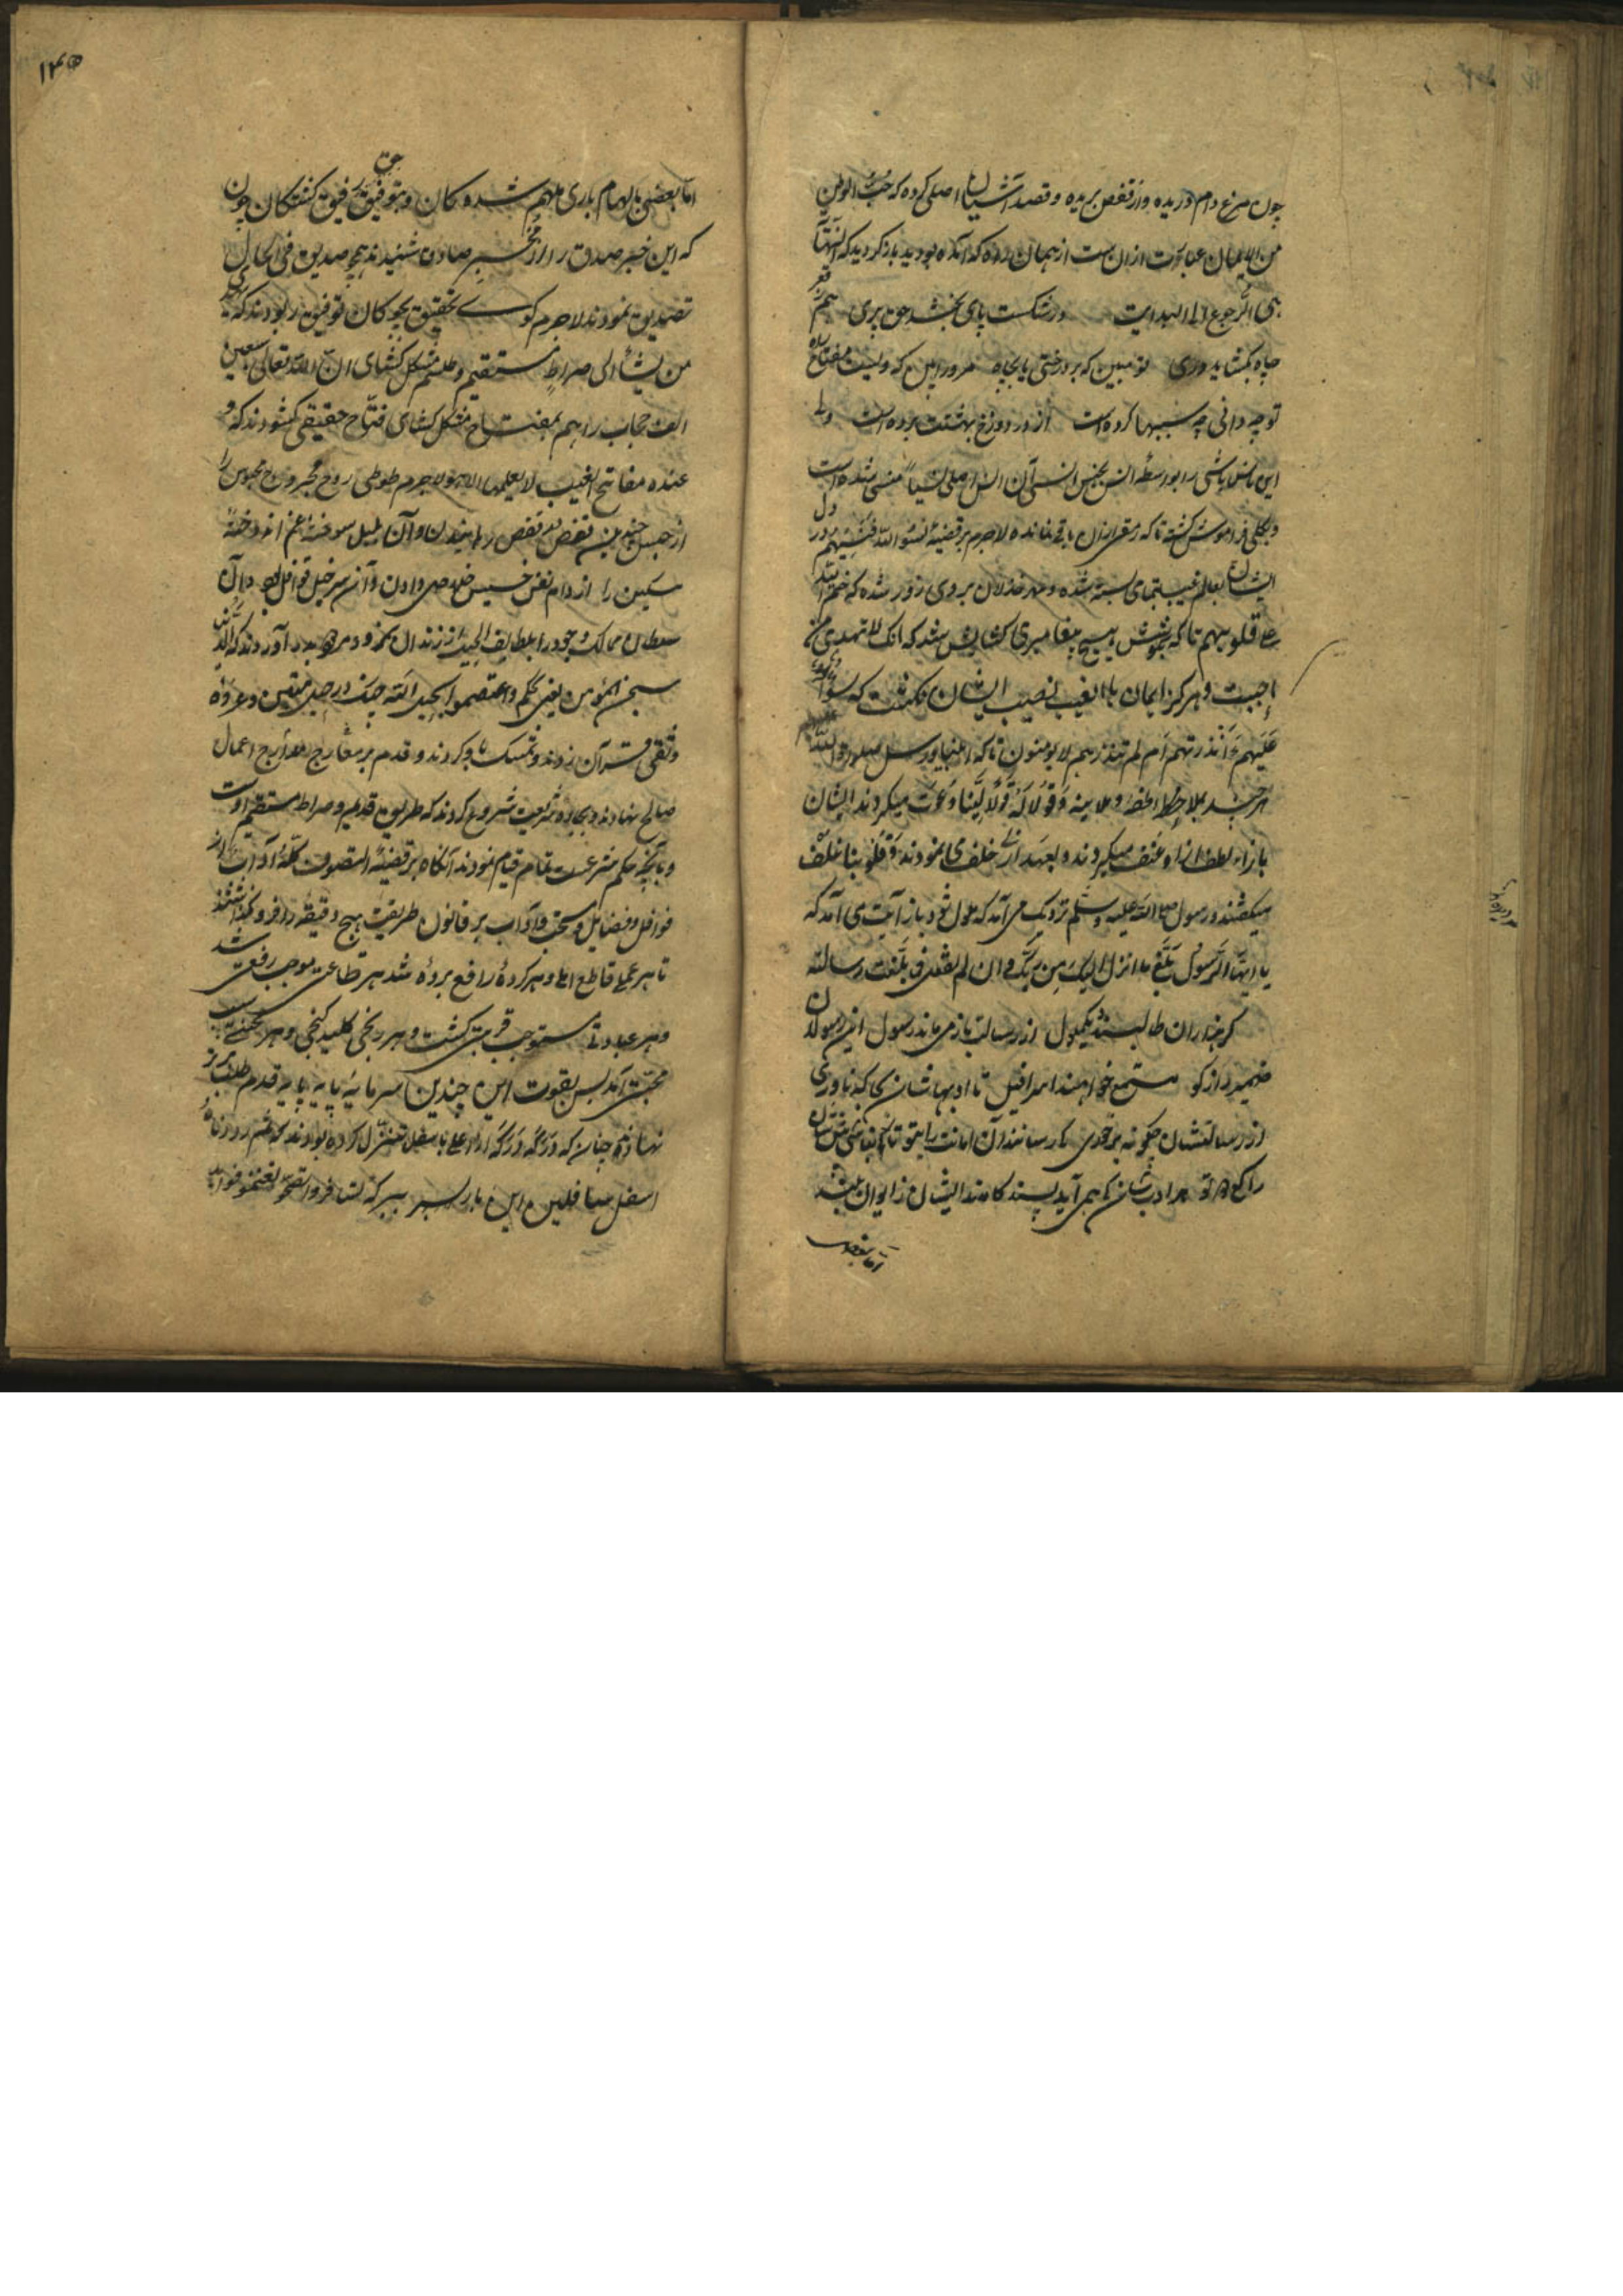 چون مرغ دام دریده و از قفص بریده و قصد آشیان اصلی کرده که حب الوطن
من الایمان عبارت از آنست از همان راه که آمده بودید باز گردید که النهایة
هی الرجوع الی البدایت در شکست پای بخشد حق پری هم ز قعر
چاه بگشاید دری تو مبین که بر درختی یا بچاه تو مرا بین که منم مفتاح راه
تو چه دانی چه سببها کرده است از در دوزخ بهشتت برده است
این ناس را بواسطه انس بجنس انسی آن انس اصلی نسیا منسی شده است
و بکلی فراموش گشته تا که رمقی از آن باقی نمانده لاجرم بر قضیه نسوا الله فنسیهم در دل
ایشان بعالم غیب بسته شده و مهر خذلان بر وی زده شده که ختم الله
علی قلوبهم تا که بکوشش هیچ پیغامبری گشایش نشد که انک لا تهدی من
احببت و هرگز ایمان بالغیب نصیب ایشان نگشت که سواء
علیهم ءانذرتهم ام لم تنذرهم لا یؤمنون تا که انبیا و رسل صلوات الله علیهم
هر چند بملاحظه و ملاینه و قولا له قولا لینا دعوت میکردند ایشان
بازاء لطف ازاو عنف میکردند و بعهد ازلی خلف می نمودند و قلوبنا غلف
میگفتند و رسول صلی الله علیه و سلم نزدیک می آمد که ملول شود باز آیت می آمد که
یا ایها الرسول بلغ ما انزل الیک من ربک و ان لم تفعل فما بلغت رسالته
گر هزاران طالبند و یک ملول از رسالت باز می ماند رسول این رسولان
ضمیر رازگو مستمع خواهند اسرافیل خو تا ادبهاشان بجا گه ناوری
از رسالتشان چگونه بر خوری کی رسانند آن امانت را بتو تا نباشی پیششان
راکع دو تو هر ادبشان کی همی آید پسند کامدند ایشان ز ایوان بلند
اما بعضی
۱۴۵
اما بعضی بالهام باری ملهم شده کان و بتوفیق حق رفیق گشتگان چون
که این خبر صدق را از مخبر صادق شنیدند همچو صدیق فی الحال
تصدیق نمودند لاجرم گوی تحقیق بچوگان توفیق ربودند که یهدی
من یشاء الی صراط مستقیم و طلسم مشکل گشای ان لله تعالی سبعین
الف حجاب را هم بمفتاح مشکل گشای فتاح حقیقی گشودند که و
عنده مفاتح الغیب لا یعلمها الا هو لاجرم طوطی روح مجروح محبوس را
از حبس چندین قفص بی نقص رهانیدن و آن بلبل سوخته غم اندوخته
مسکین را از دام نفس خسیس خلاص دادن و آن سرخیل قوافل و آن
سلطان ممالک وجود را بلطایف الحیل از زندان بدر آوردند که الدنیا
سجن المؤمن یعنی بحکم و اعتصموا بحبل الله چنگ در حبل متین و عروه
وثقی قرآن زدند و تمسک باو کردند و قدم بر معارج مدارج اعمال
صالح نهادند و بجاده شریعت شروع کردند که طریق قدیم و صراط مستقیم اوست
و بآنچه حکم شرعست تمام قیام نمودند آنگاه بر قضیه التصوف کله آداب از
نوافل و فضایل و مستحب و آداب بر قانون طریقت هیچ دقیقه را فرو نگذاشتند
تا هر عملی قاطع املی و هر کرده رافع پرده شد هر طاعتی موجب رفعتی شد
و هر عبادتی مستوجب قربتی گشت و هر رنجی کلید گنجی و هر محنتی سبب
محبتی آمد پس بقوت این چندین سرمایه پایه پایه قدم طلب بر
نهادند چنان که درکه درکه از اعلی باسفل تنزل کرده بودند که ثم رددناه
اسفل سافلین این بار سیر بسیر که سافروا تصحوا تغنموا فواید